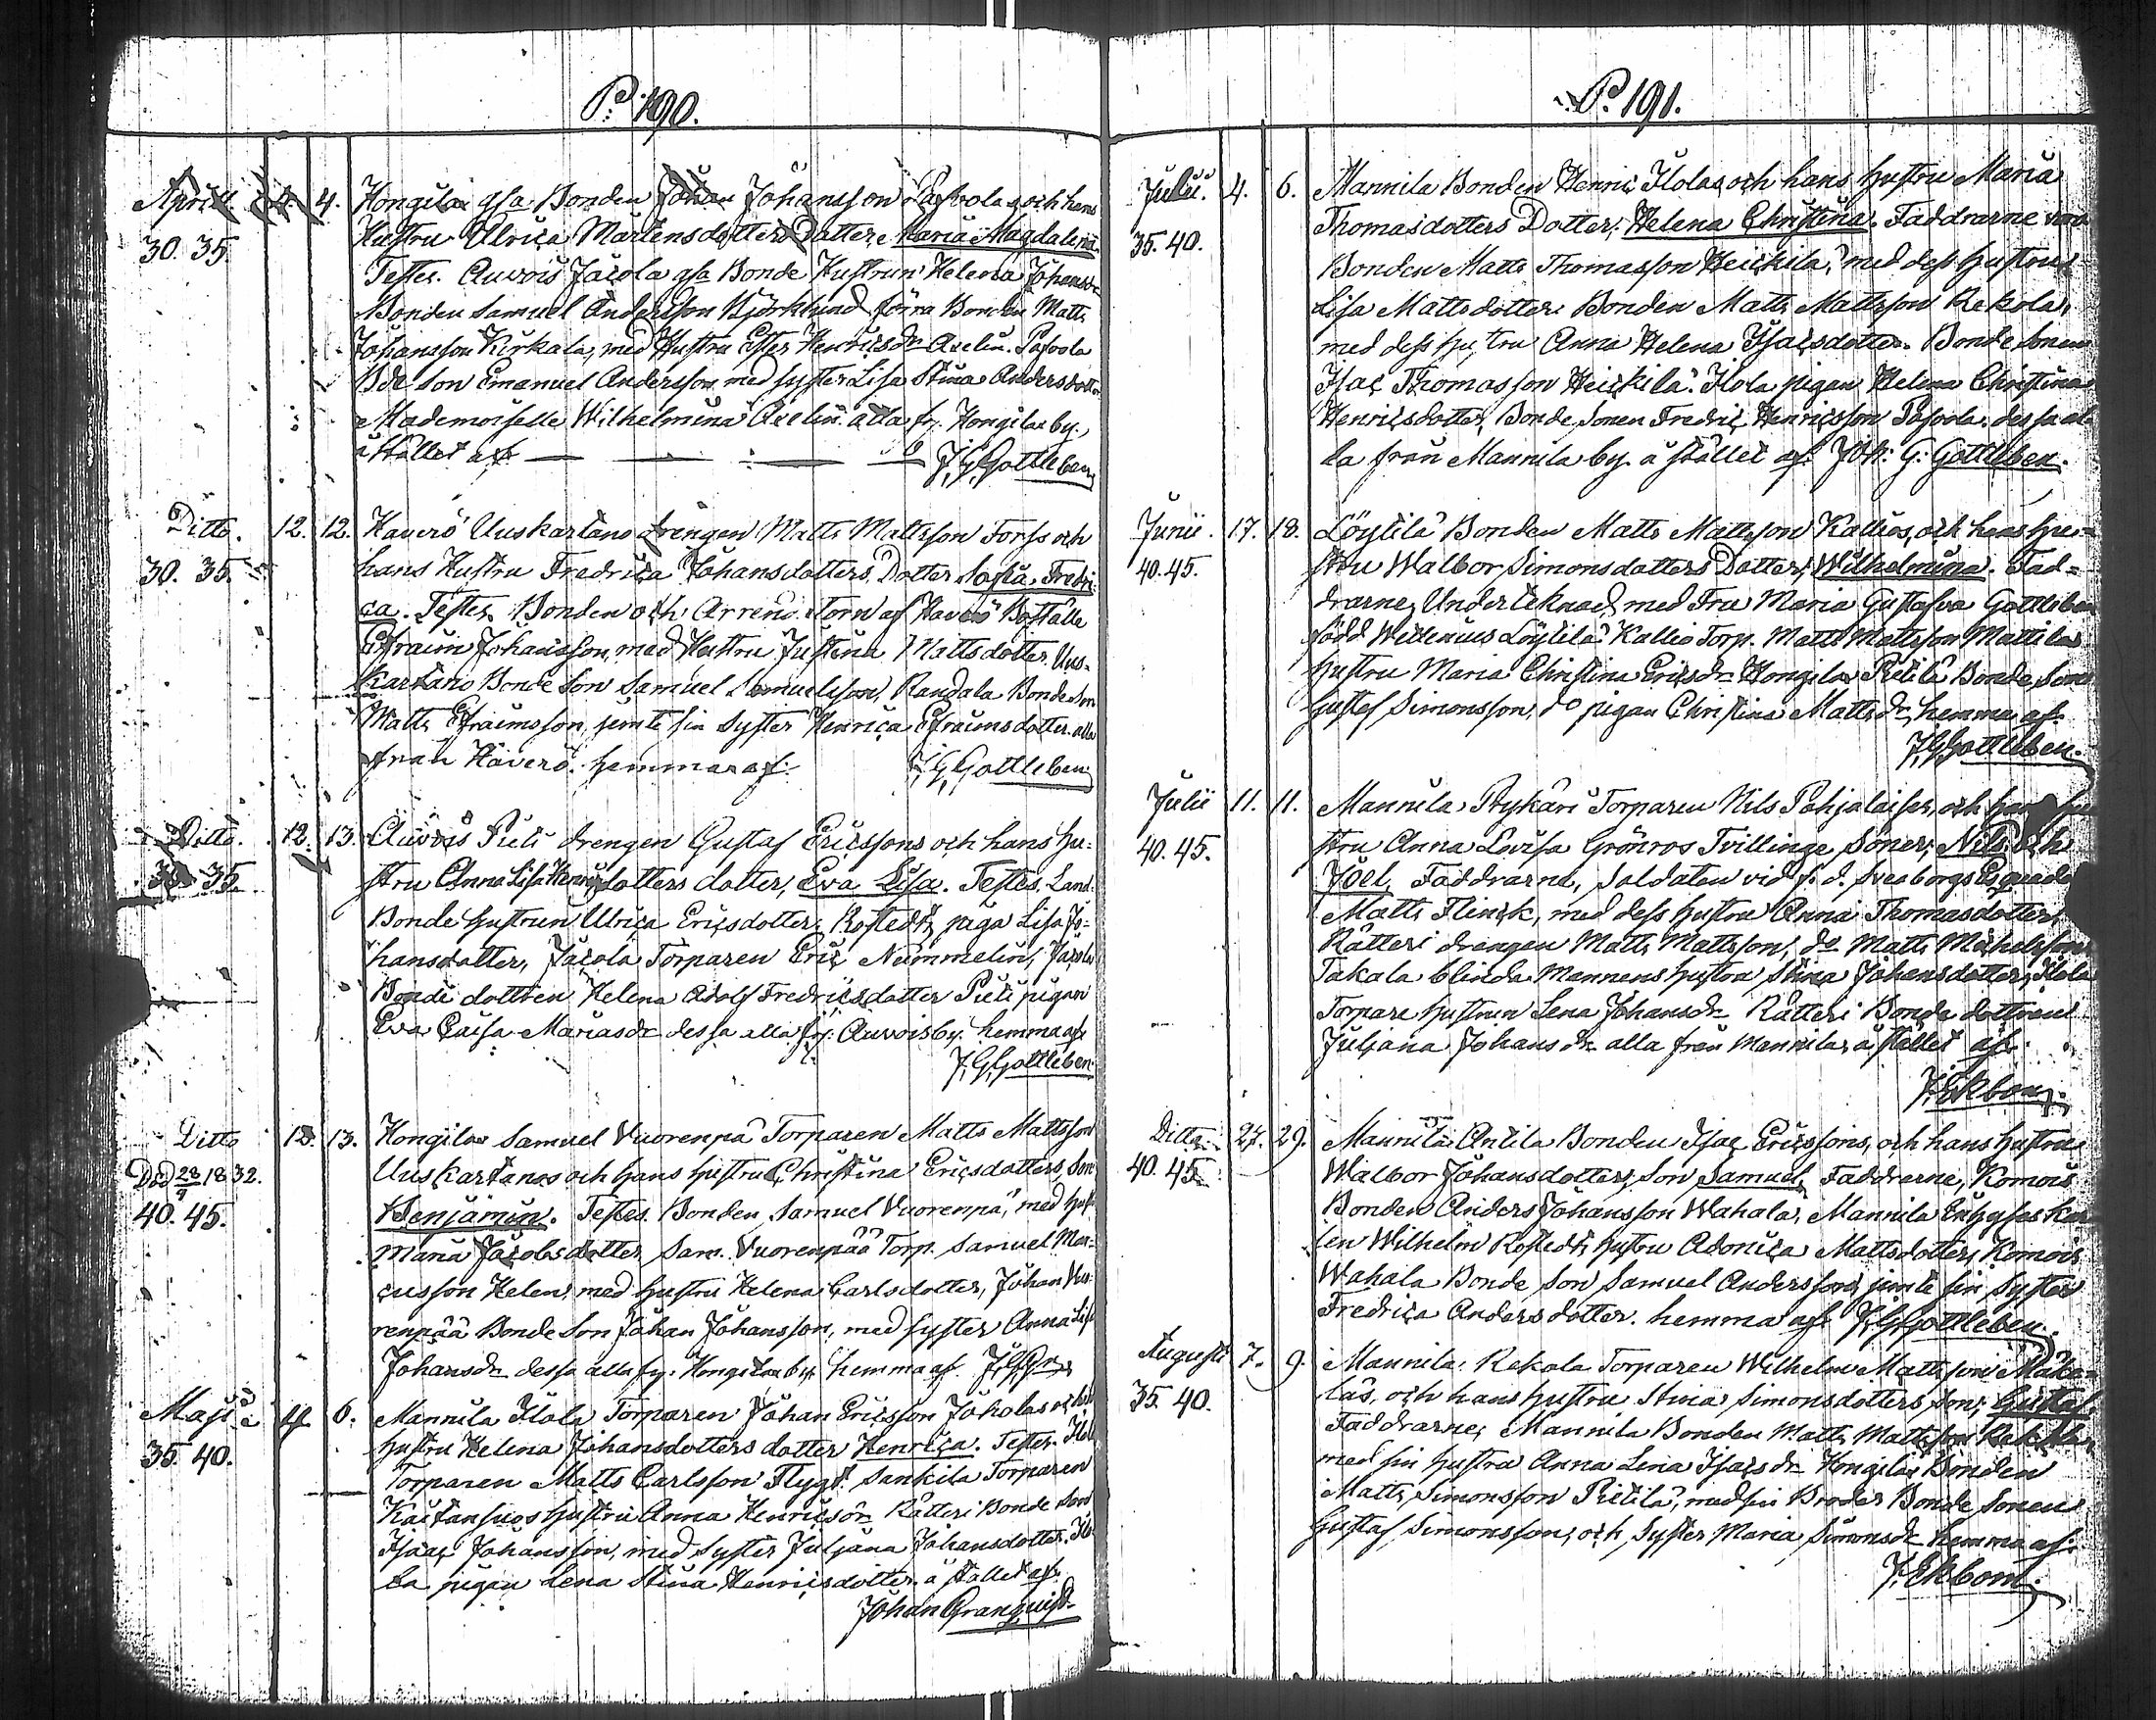 P. 190.
April 4. 4. Hongila Bonden Johan Johansson och hans
30. 35. Hustru Ulrica Mårtensdotters Dotter, Maria Magdalena
Testes. Auvois Jacola Bonde Hustrun Helena
Bonden Samuel Andersson Björklund förra Bonden Matts
Johansson Kirkala, med Hustru
Bde Son Emanuel Andersson med syster Lisa Stina Andersdotter
Mademoiselle Wilhelmina alla fr. Hongila by,
å stället af J. G. Gottleben
Ditto. 12. 12. Haverö Uuskartano drengen Matts Mattsson Forss och
30. 35. hans Hustru Fredrica Johansdotters Dotter Sofia Fredri-
ca. Testes. Bonden och af Haverö Boställe
Efraim Johansson, med Hustru Justina Mattsdotter. Uus-
kartano Bonde Son Samuel Samuelsson, Randala Bonde Son
Matts Efraimsson jemte sin Syster Henrica Efraimsdotter. alla
från Haverö. hemma af: J. G. Gottleben
Ditto. 12. 13. Auvois Pieti drengen Gustaf Ericssons och hans Hu-
30. 35. stru Anna Lisa Henricsdotters dotter, Eva Lisa. Testes. Land-
Bonde hustrun Ulrica Ericsdotter, Rostedt, piga Lisa Jo-
hansdotter, Jacola Torparen Eric Nummelin, Jacola
Bonde dottren Helena Adolf Fredricsdotter Pieti pigan
Eva Caisa Mariasdr dessa alla fr: Auvois by. hemma af
J. G. Gottleben.
Ditto 12. 13. Hongila Samuel Vuorenpä Torparen Matts Mattsson
Död 28/9 1832. Uuskartanos och hans hustru Christina Ericsdotters, Son
40. 45. Benjamin. Testes. Bonden Samuel Vuorenpä, med Hust
Maria Jacobsdotter, Sam. Vuorenpää Torp. Samuel Mar-
cusson Helen, med hustru Helena Carlsdotter, Johan Vuo-
renpää Bonde Son Johan Johansson, med syster Anna Lisa
Johansdr dessa alla fr: Hongila by hemma af.
Maji 4. 6. Mannila Ilola Torparen Johan Ericsson Jokolas och hans
35. 40. Hustru Helena Johansdotters dotter Henrica. Testes.
Torparen Matts Carlsson Flygt. Sankila Torparen
hustru Anna Henricsdr Rätteri Bonde Son
Isaac Johansson, med Syster Juliana Johansdotter. Ilo-
la pigan Lena Stina Henricsdotter. å stället af.
Johan Granquist
P. 191.
Julii. 4. 6. Mannila Bonden Henric Ilolas och hans hustru Maria
35. 40. Thomasdotters Dotter; Helena Christina. Faddrarne voro
Bonden Matts Thomasson Heickilä, med dess hustru
Lisa Mattsdotter. Bonden Matts Mattsson Rekola,
med dess hustru Anna Helena Isacsdotter. Bonde Sonen
Isac Thomasson Heickilä. Ilola pigan Helena Christina
Henricsdotter, Bonde Sonen Fredric Henricsson dessa al-
la från Mannila by. å stället af: Joh: G: Gottleben.
Junii. 17. 18. Löytilä Bonden Matts Mattsson Kallios, och hans hu-
40. 45. stru Walbor Simonsdotters Dotter; Wilhelmina. Fad-
drarne, Undertecknad, med Fru Maria Gustafva Gottleben
född Löytilä Kallio Torp. Matts Mattsson Mattila
hustru Maria Christina Ericsdr Hongila Pietilä Bonde Son
Gustaf Simonsson, do pigan Christina Mattsdr, hemma af.
J. G. Gottleben.
Julii 11. 11. Mannila, Prykäri Torparen Nils Pohjalaises, och hans hu-
40. 45. stru Anna Lovisa Grönros Tvillinge Söner; Nils och
Joel, Faddrarne, Soldaten vid f. d. Sveaborgs
Matts Flinck, med dess hustru Anna Thomasdotter,
Rätteri drengen Matts Mattsson, do Matts Michelsson
Takala blinda Mannens hustru Stina Johansdotter, Ilola
Torpare hustrun Lena Johansdr Rätteri Bonde dottren
Juliana Johansdr alla från Mannila, å stället af.
J. Ekbom.
Ditto 27. 29. Mannila Antila Bonden Isac Ericssons, och hans hustru
40. 45. Walbor Johansdotters, Son Samuel, Faddrarne, Komois
Bonden Anders Johansson Wahala, Mannila
Wilhelm Rostedts hustru Adonica Mattsdotter, Komois
Wahala Bonde Son Samuel Andersson, jemte sin Syster
Fredrica Andersdotter. hemma af. J. G. Gottleben.
Augusti 7. 9. Mannila, Rekola Torparen Wilhelm Mattsson Mäke-
35. 40. läs, och hans hustru Stina Simonsdotters Son; Gustaf
Faddrarne, Mannila Bonden Matts Mattsson Rekola,
med sin hustru Anna Lena Isacsdr Hongila Bonden
Matts Simonsson Pietilä, med sin Broder Bonde Sonen
Gustaf Simonsson, och Syster Maria Simonsdr hemma af.
J. Ekbom.